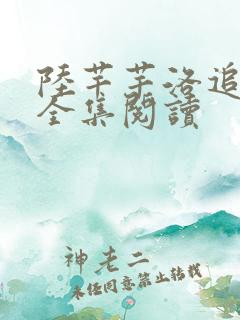 陸芊芊洛追
全集閱讀
神老二
未经同意禁止转载